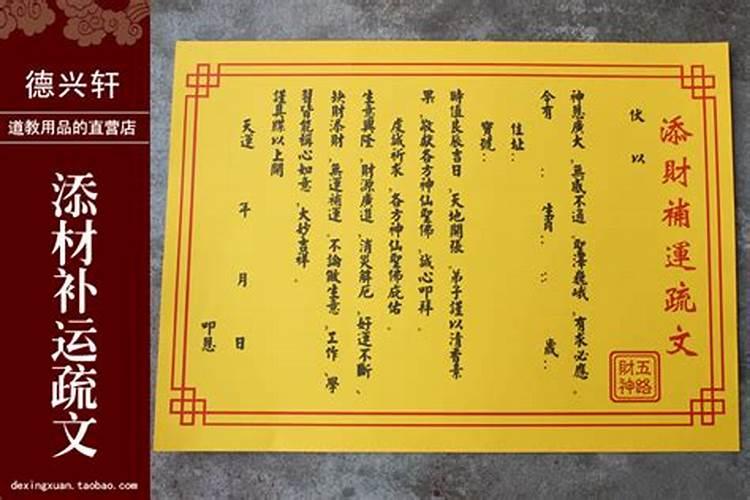 德兴轩
道教用品的直营店
添材补运疏文
dexingxuan.taobao.com
添財補運疏文
五路
財神
伏以
神恩廣大，無感不通，聖澤巍峨，有求必應。
今有：生肖：：歲：
住址：
寶號：
時值良辰吉日，天地開張，弟子謹以清香素
果，敬献各方神仙聖佛，誠心叩拜。
虔誠祈求，各方神仙聖佛庇佑。
生意興隆，財源廣進，消災解厄，好運不斷、
缺財添財，無運補運，不論做生意，工作，學
習皆能稱心如意，大妙吉祥。
謹具牒以上聞
天運年月日
叩恩